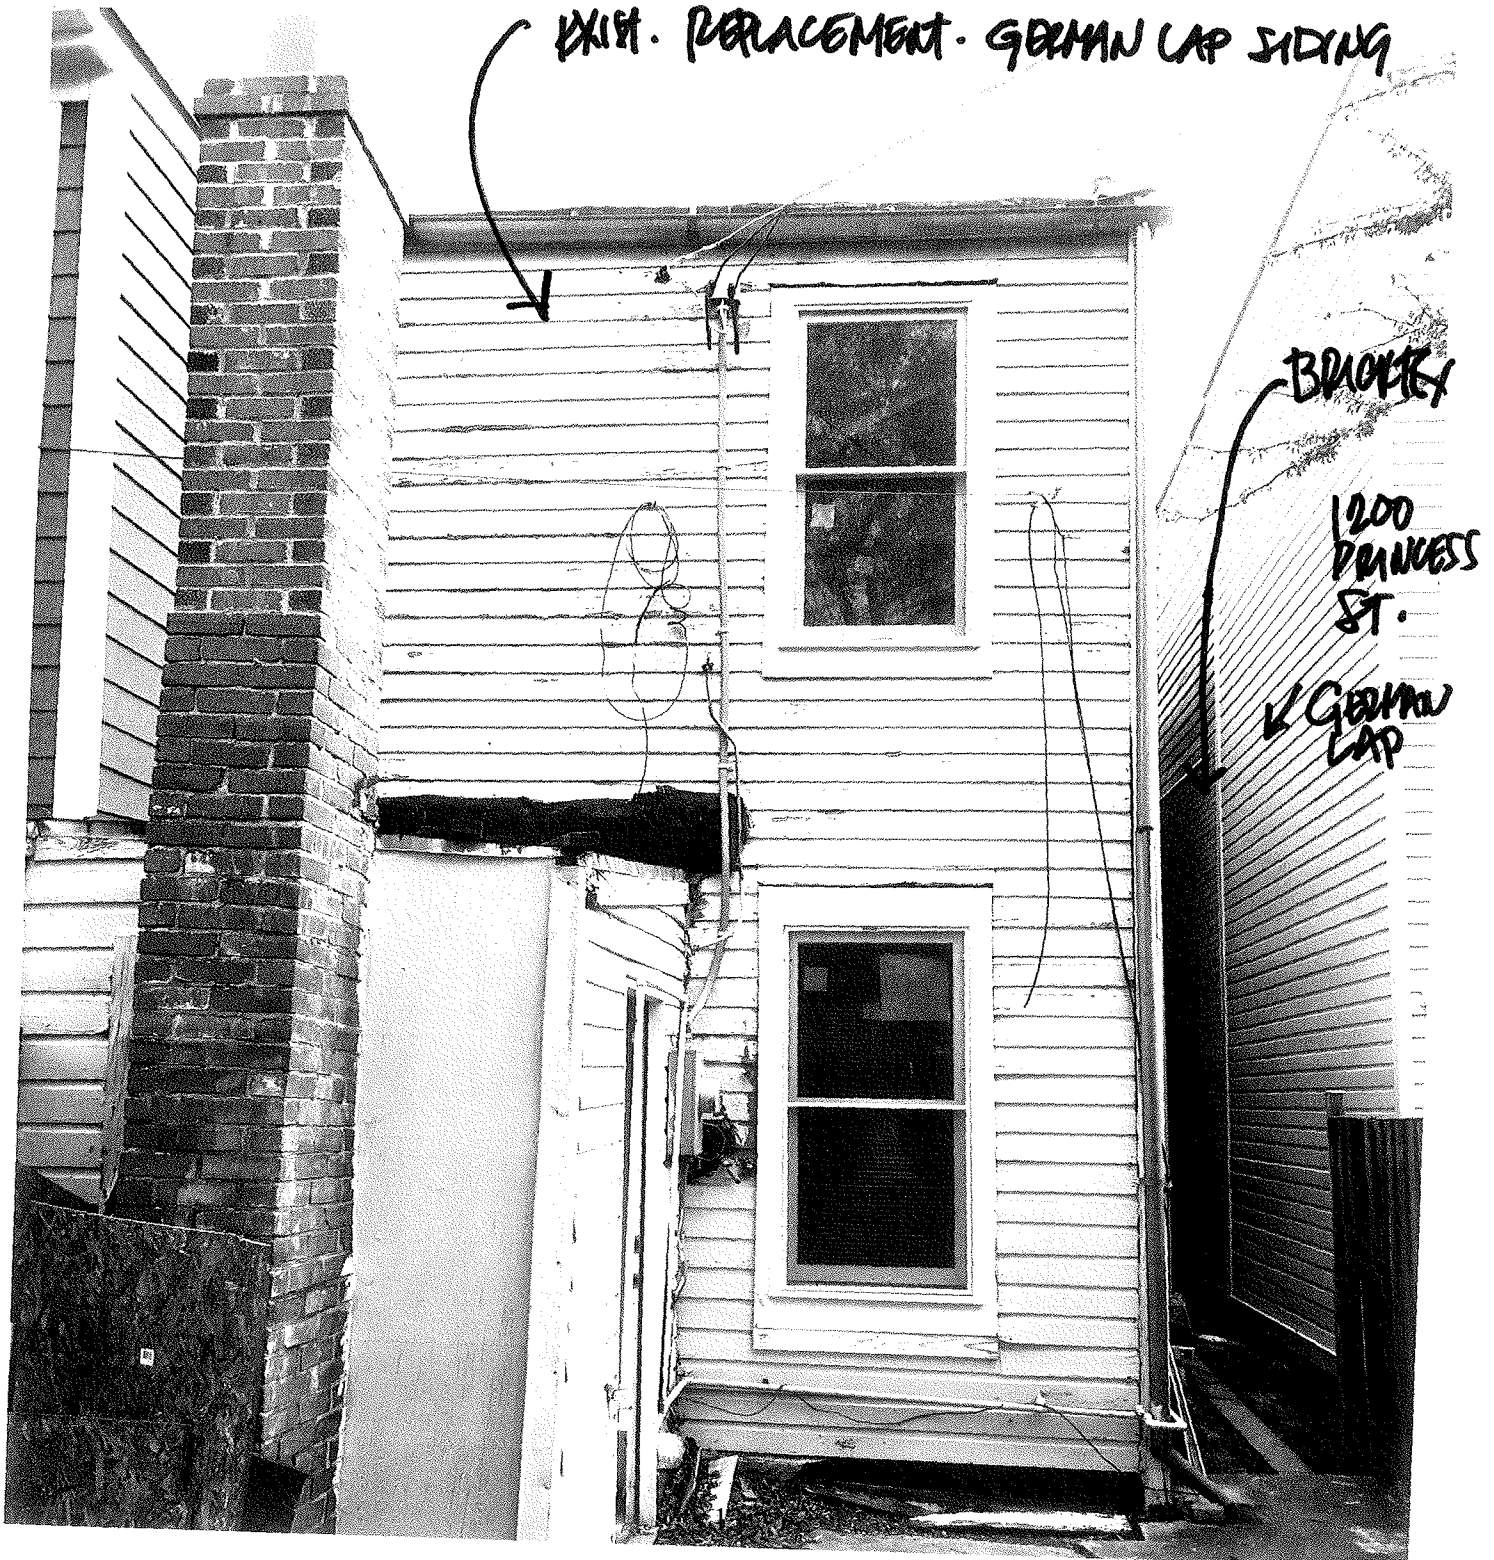 EXIST. REPLACEMENT. GERMAN LAP SIDING
BRICKTEX
1200
PRINCESS
ST.
GERMAN
LAP